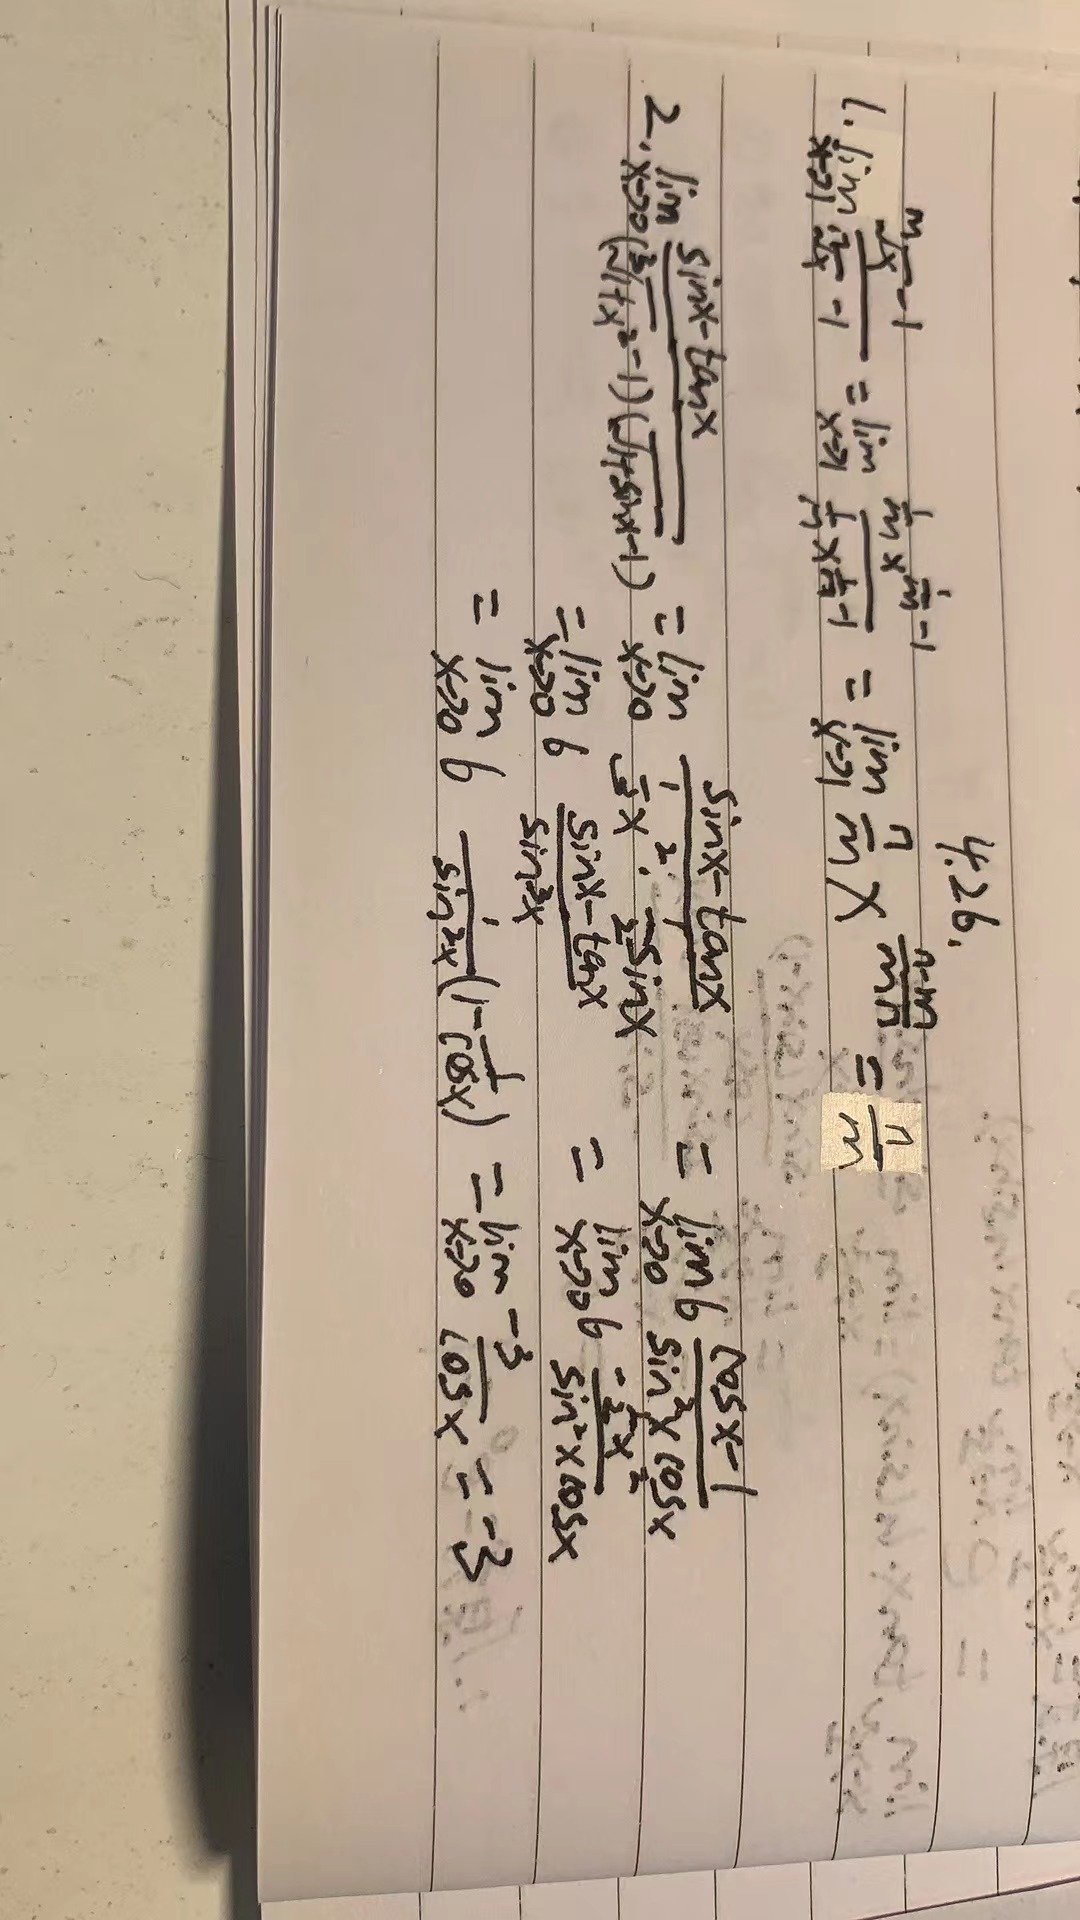 4.26.
1. lim x→1 (ᵐ√x - 1)/(ⁿ√x - 1) = lim x→1 (1/m x^(1/m - 1))/(1/n x^(1/n - 1)) = lim x→1 n/m x^((n-m)/(mn)) = n/m
2. lim x→0 (sinx - tanx)/((³√(1+x²) - 1)(√(1+sinx) - 1)) = lim x→0 (sinx - tanx)/(1/3 x² · 1/2 sinx) = lim x→0 6 (cosx - 1)/(sin²x cosx)
= lim x→0 6 (sinx - tanx)/(sin³x) = lim x→0 6 (-1/2 x²)/(sin²x cosx)
= lim x→0 6 1/(sin²x) (1 - 1/cosx) = lim x→0 -3/cosx = -3